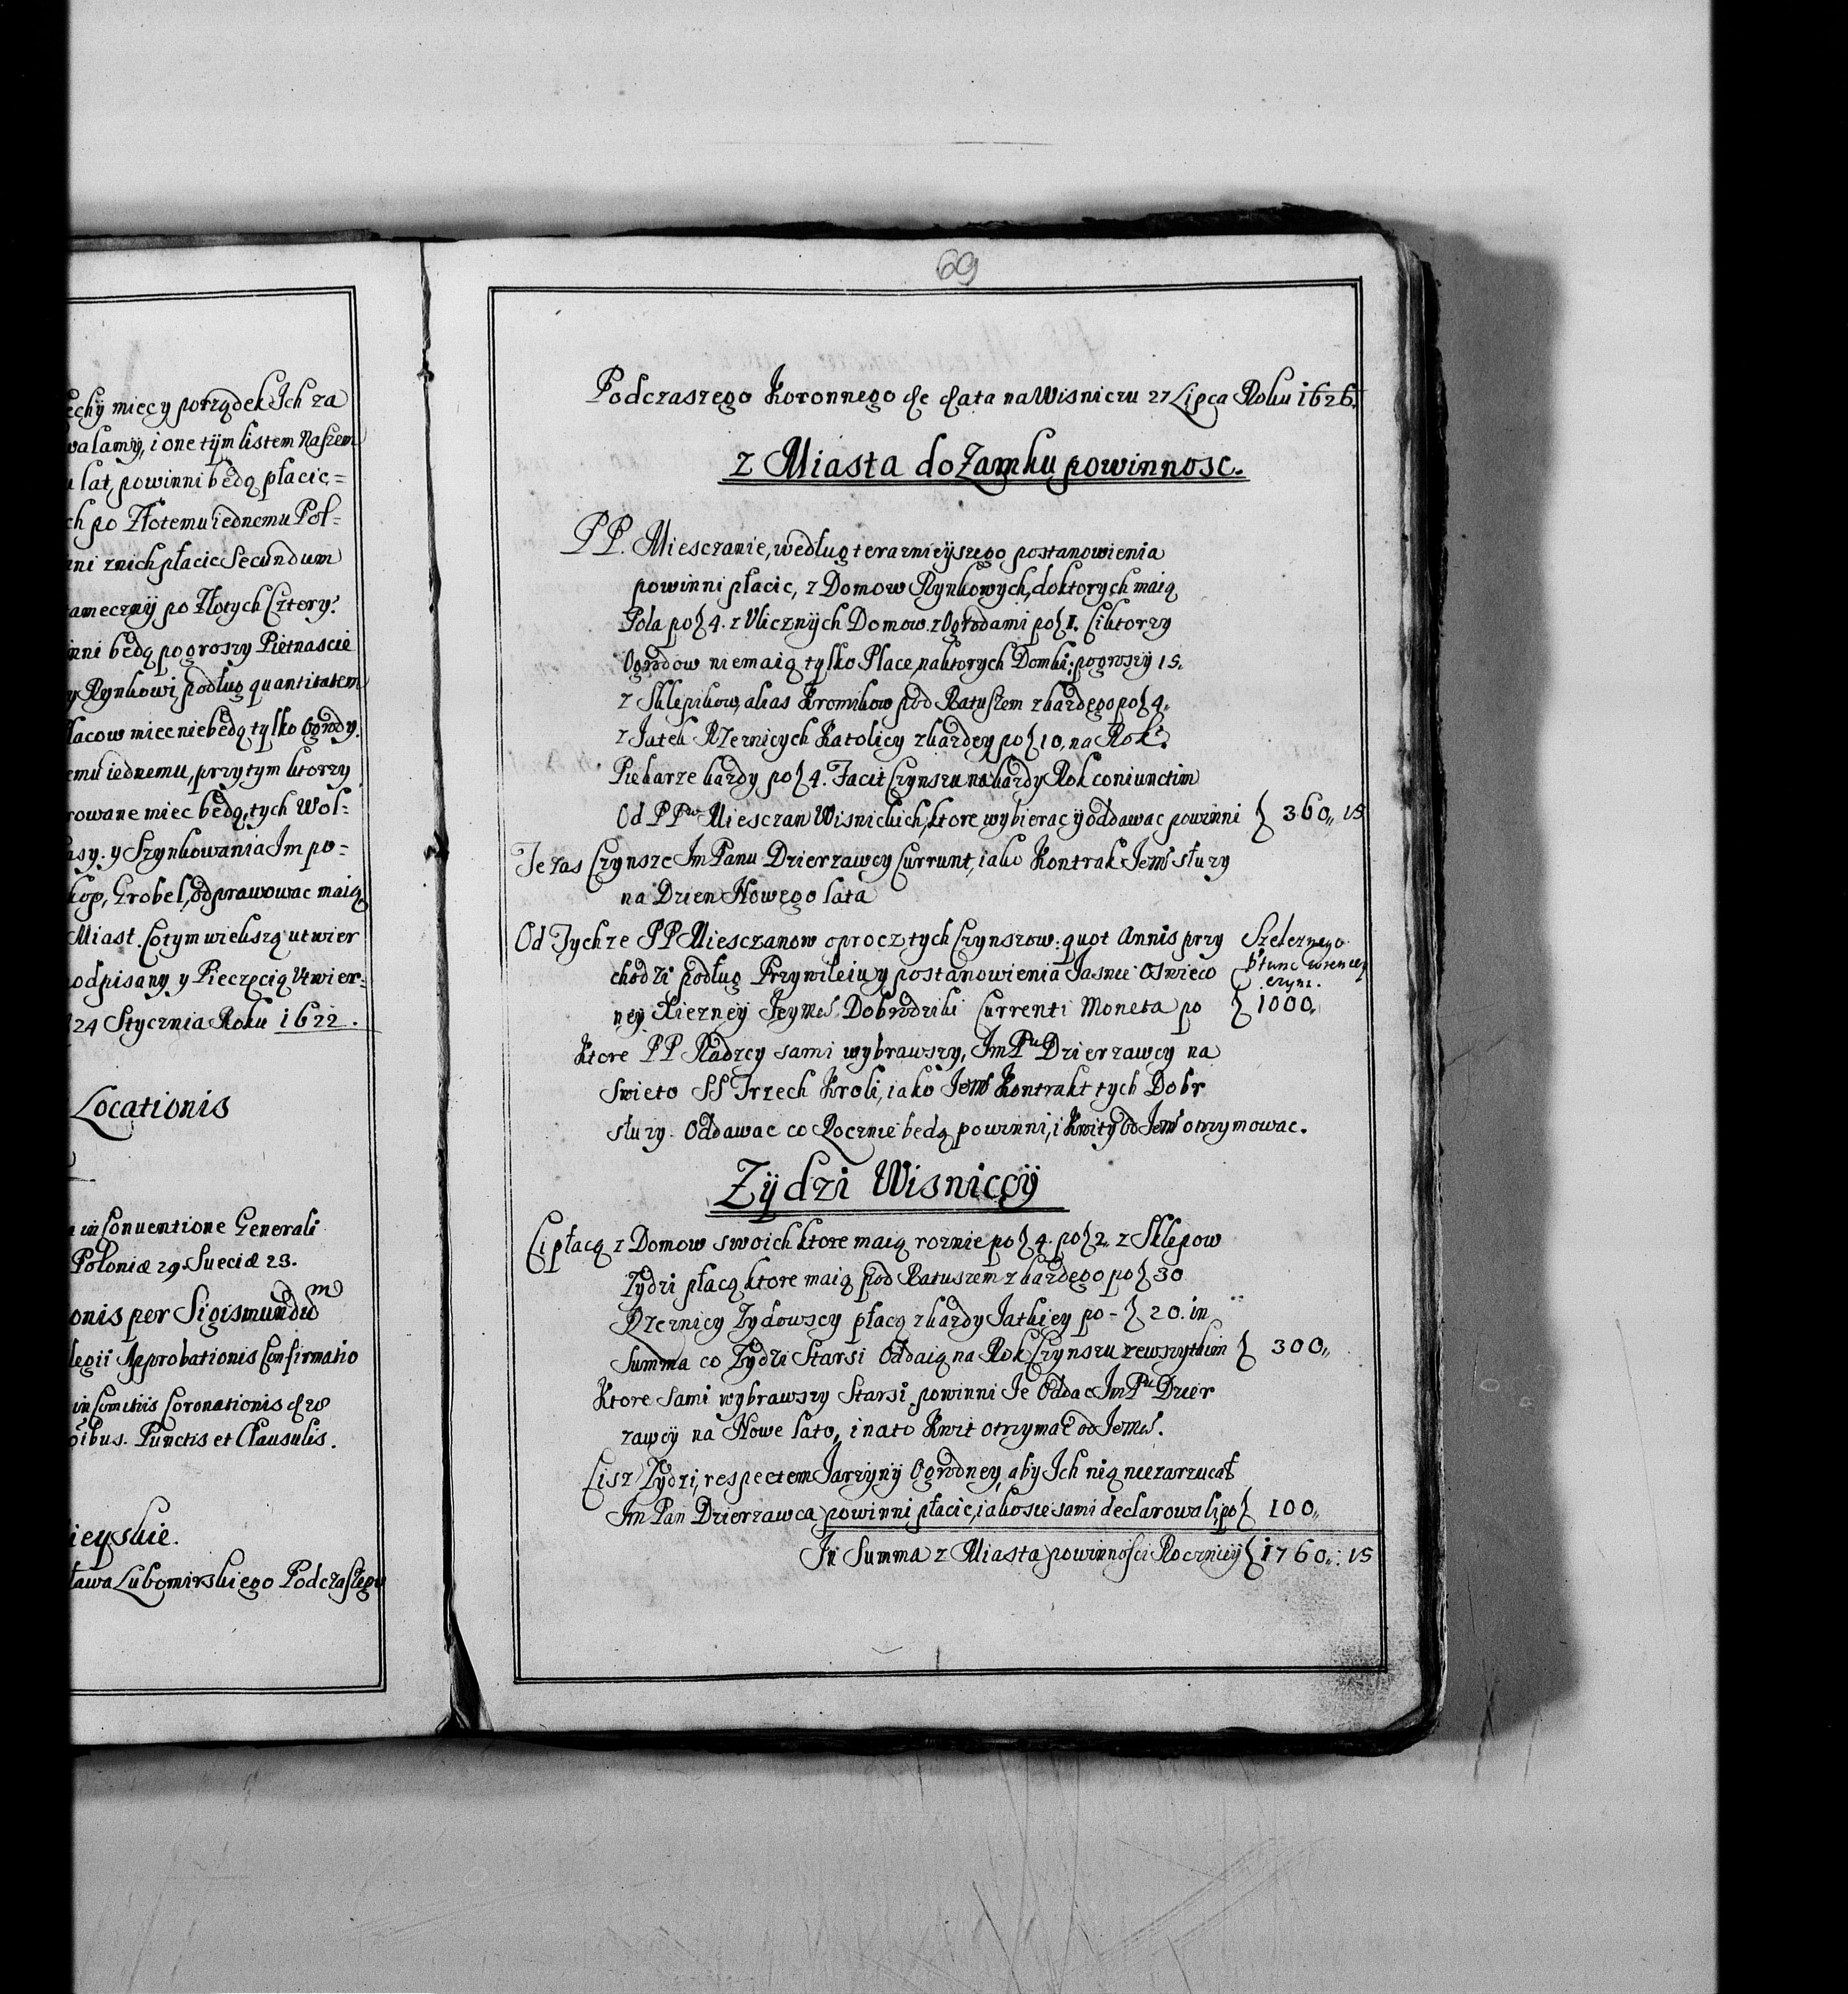 echÿ miec y porządek Ich za
walamÿ, i one tÿm listem Naszem
lat, powinni będą płacic,=
ch po Złotemu iednemu Pol=
nni znich płacic Secundum
tamecznÿ po Złotych Cztery.
inni będą po groszy Pietnascie
y Rynkowi podług quantitatem
Placow miec niebędą tylko Ogrody.
emu iednemu, przy tym ktorzy
rowane miec będą, tych Wol=
asy. y Szynkowania Im po=
kop, Grobel, odprawowac maią
Miast. Co tym wiekszą utwier
podpisany y Pieczęcią Utwier=
24 Stycznia Roku 1622.
Locationis
in Conventione Generali
Poloniæ 29. Sueciæ 23.
onis per Sigismundum
legii Approbationis Confirmatio
in Comitiis Coronationis
oibus. Punctis et Clausulis.
ieyskie.
sława Lubomirskiego Podczaszego
69
Podczaszego Koronnego de data na Wisniczu 27 Lipca Roku 1626.
z Miasta do Zamku powinnosc.
PP. Miesczanie, według terazniejÿszego postanowienia
powinni płacic, z Domow Rynkowych, doktorych maią
Pola po ł 4. z Ulicznÿch Domow. z Ogrodami po ł 1. Ci ktorzy
Ogrodow niemaią tylko Place, naktorych Domki. po groszÿ 15.
z Sklepikow, alias Kromikow pod Ratuszem zkazdego po ł 4.
z Jatek Rzeznicych Katolicy zkazdey po ł 10, na Rok.
Piekarze kazdy po ł 4. Facit Czynszu na kazdy Rok coniunctim
Od PPw Miesczan Wisnickich, ktore wybierac ÿ oddawac powinni ł 360,, 15
Te zas Czynsze Im Panu Dzierzawcy Currunt, iako Kontrak Jemś słuzy
na Dzien Nowego lata
Od Tychze PP Miesczanow oprocz tych Czynszow: quot Annis przy
chodzi podług Przywileiu y postanowienia Jasnie Oswieco
ney Xiezneÿ Jeymć Dobrodziki Currenti Moneta po ł 1000,,
Ktore PP Radzcy sami wybrawszy, Im Pu Dzierzawcy na
Swieto SS Trzech Kroli, iako Jemś Kontrakt tych Dobr
słuzy. Oddawac co Rocznie będą powinni, i Kwitÿ od Jemś otrzymowac.
Zÿdzi Wisniccÿ
Ci płacą z Domow swoich ktore maią roznie po ł 4. po ł 2. z Sklepow
Zydzi płacą ktore maią pod Ratuszem z kazdego po ł 30
Rzeznicy Zydowscy płacą z kazdy Jatkiey po - ł 20. in
Summa co Zydzi Starsi Oddaią na Rok Czynszu zewszytkim ł 300,,
Ktore sami wybrawszy Starsi, powinni Je Oddac Im Pu Dzier
zawcÿ na Nowe lato, i nato Kwit otrzymac od Jemś.
Cisz Zydzi, respectem Jarzÿnÿ Ogrodney, aby Ich nią niezarzucał
Im Pan Dzierzawca powinni płacic, iako sie sami declarowali, po ł 100,,
In Summa z Miasta powinności Rocznieÿ ł 1760,, 15